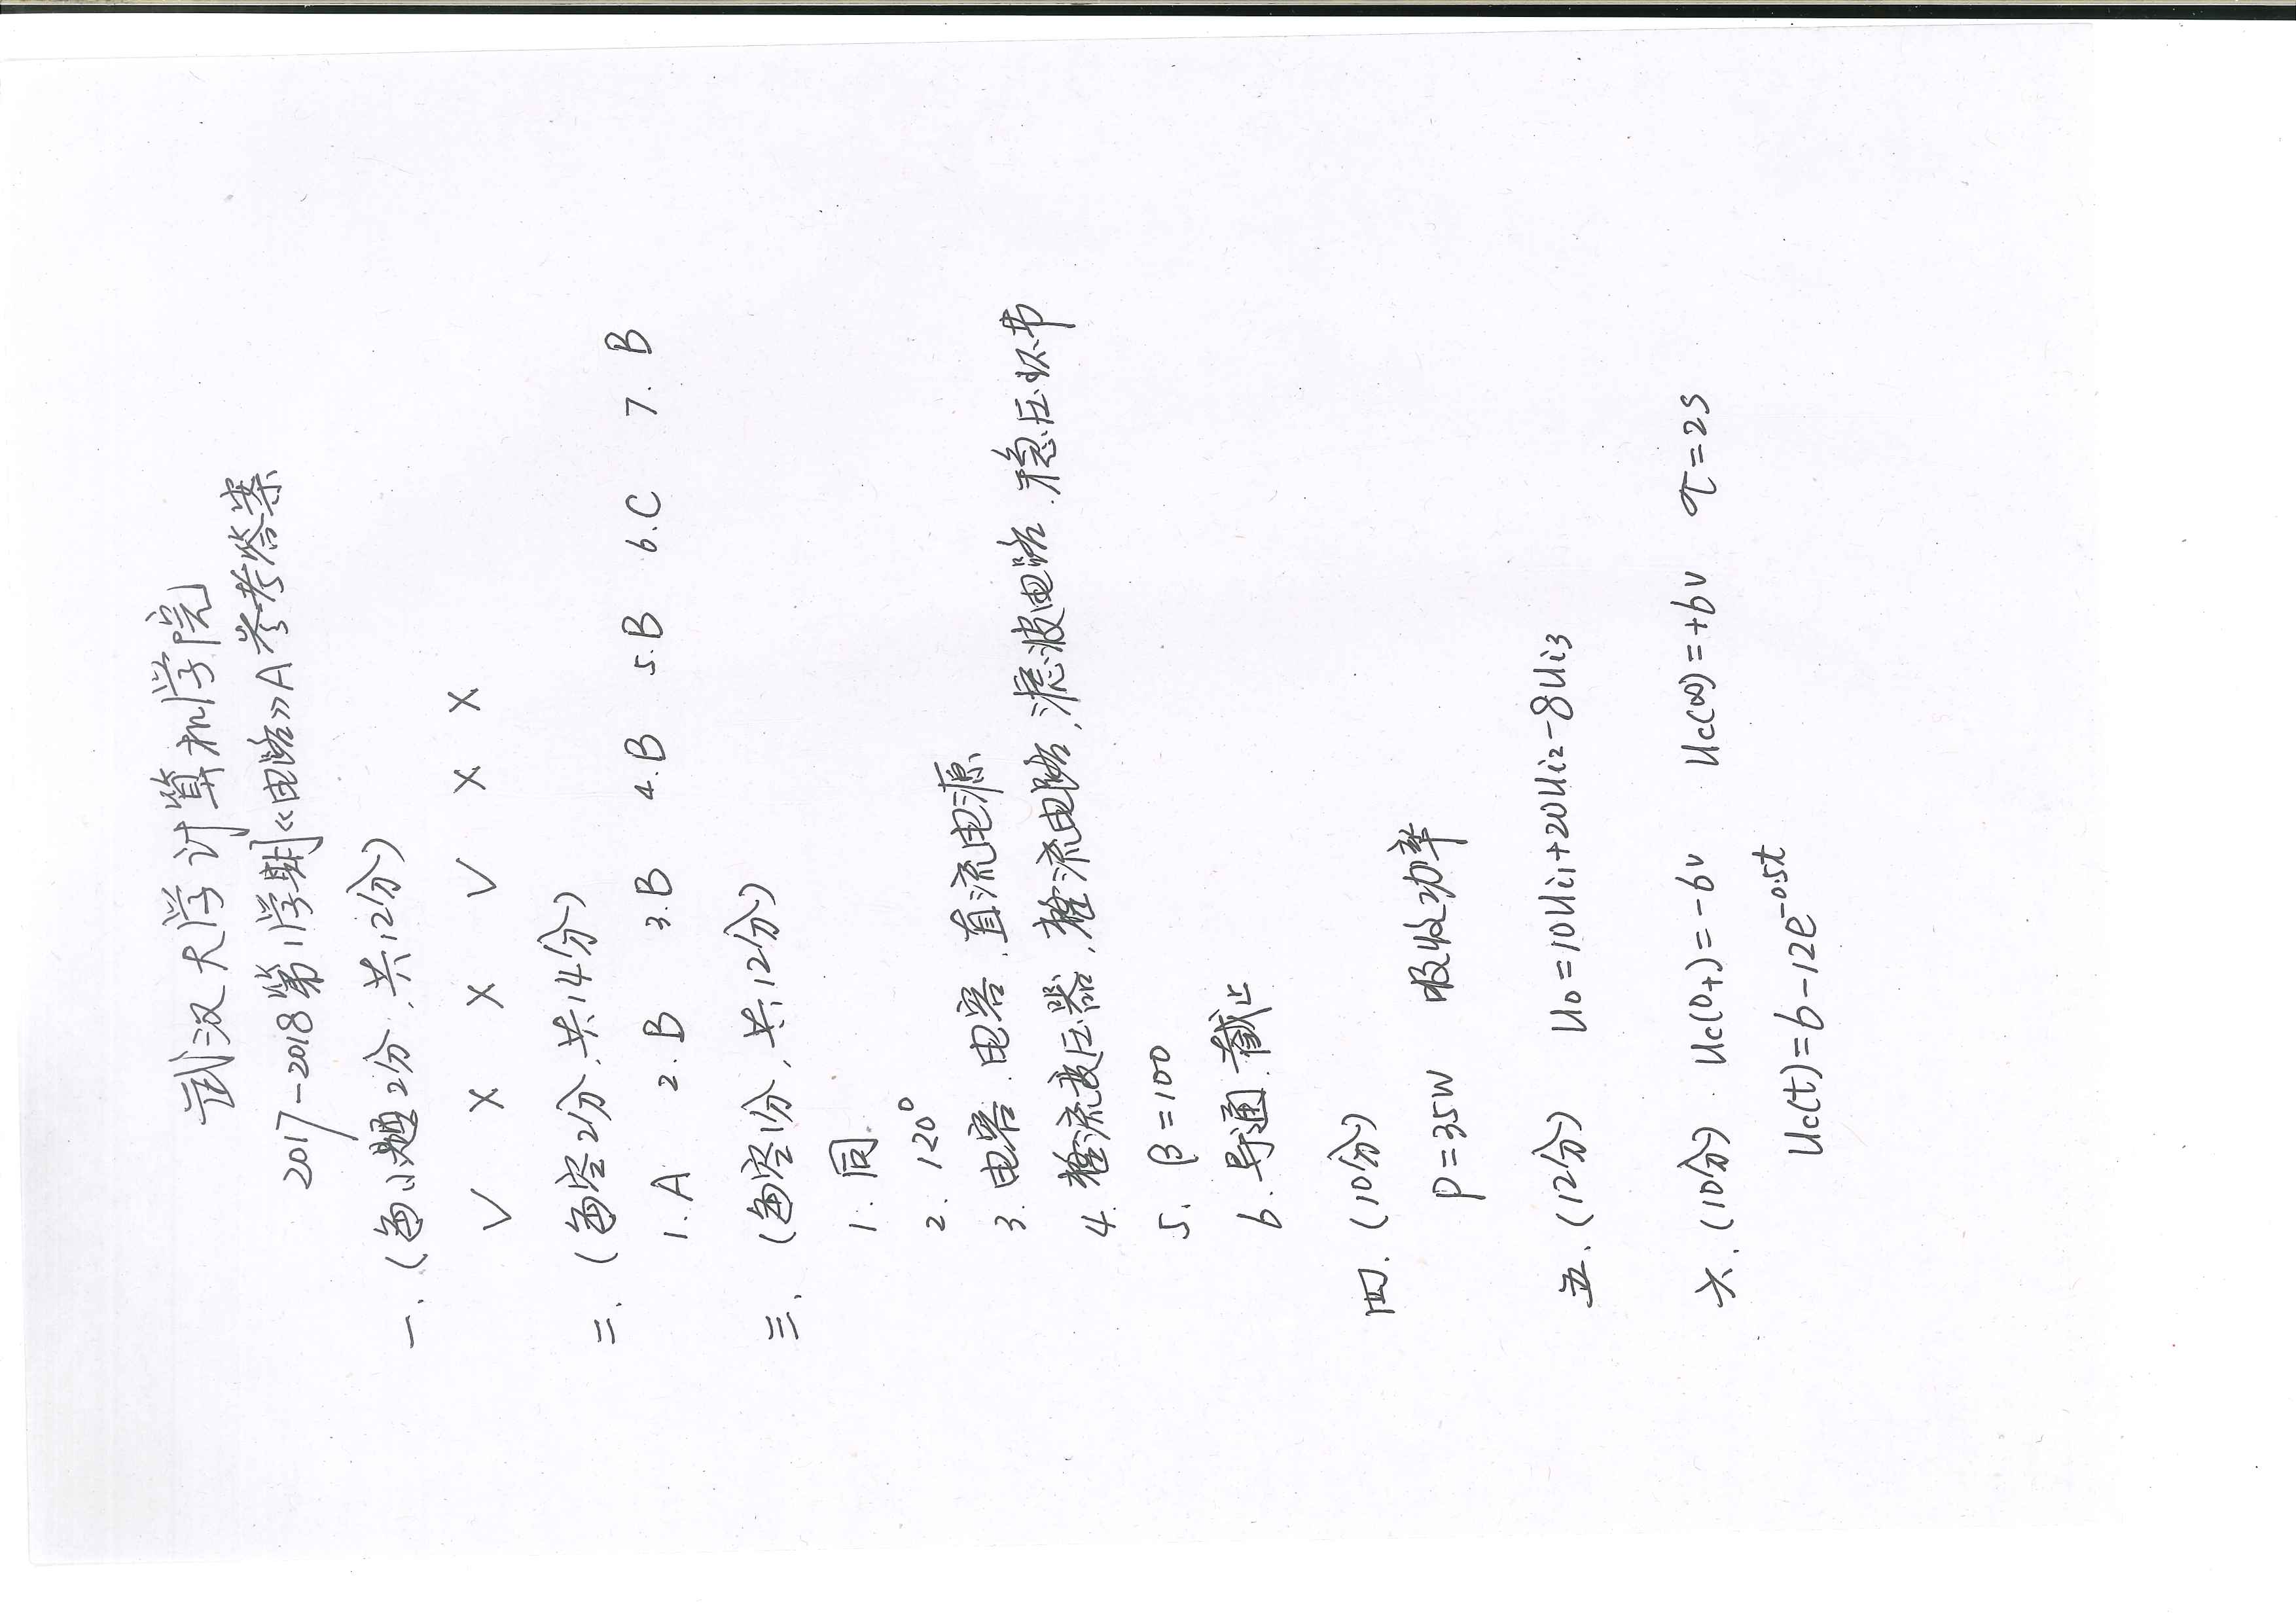 武汉大学计算机学院
2017-2018第1学期《电路》A参考答案
一、(每小题2分,共12分)
√ × × √ × ×
二、(每空2分,共14分)
1. A 2. B 3. B 4. B 5. B 6. C 7. B
三、(每空1分,共12分)
1. 同
2. 120°
3. 电容、电容、直流电源
4. 整流变压器、整流电路、滤波电路、稳压环节
5. β=100
6. 导通、截止
四、(10分)
P=35W 吸收功率
五、(12分) U₀=10Uᵢ₁+20Uᵢ₂-8Uᵢ₃
六、(10分) Uc(0₊)=-6V Uc(∞)=+6V τ=2S
Uc(t)=6-12e^-0.5t